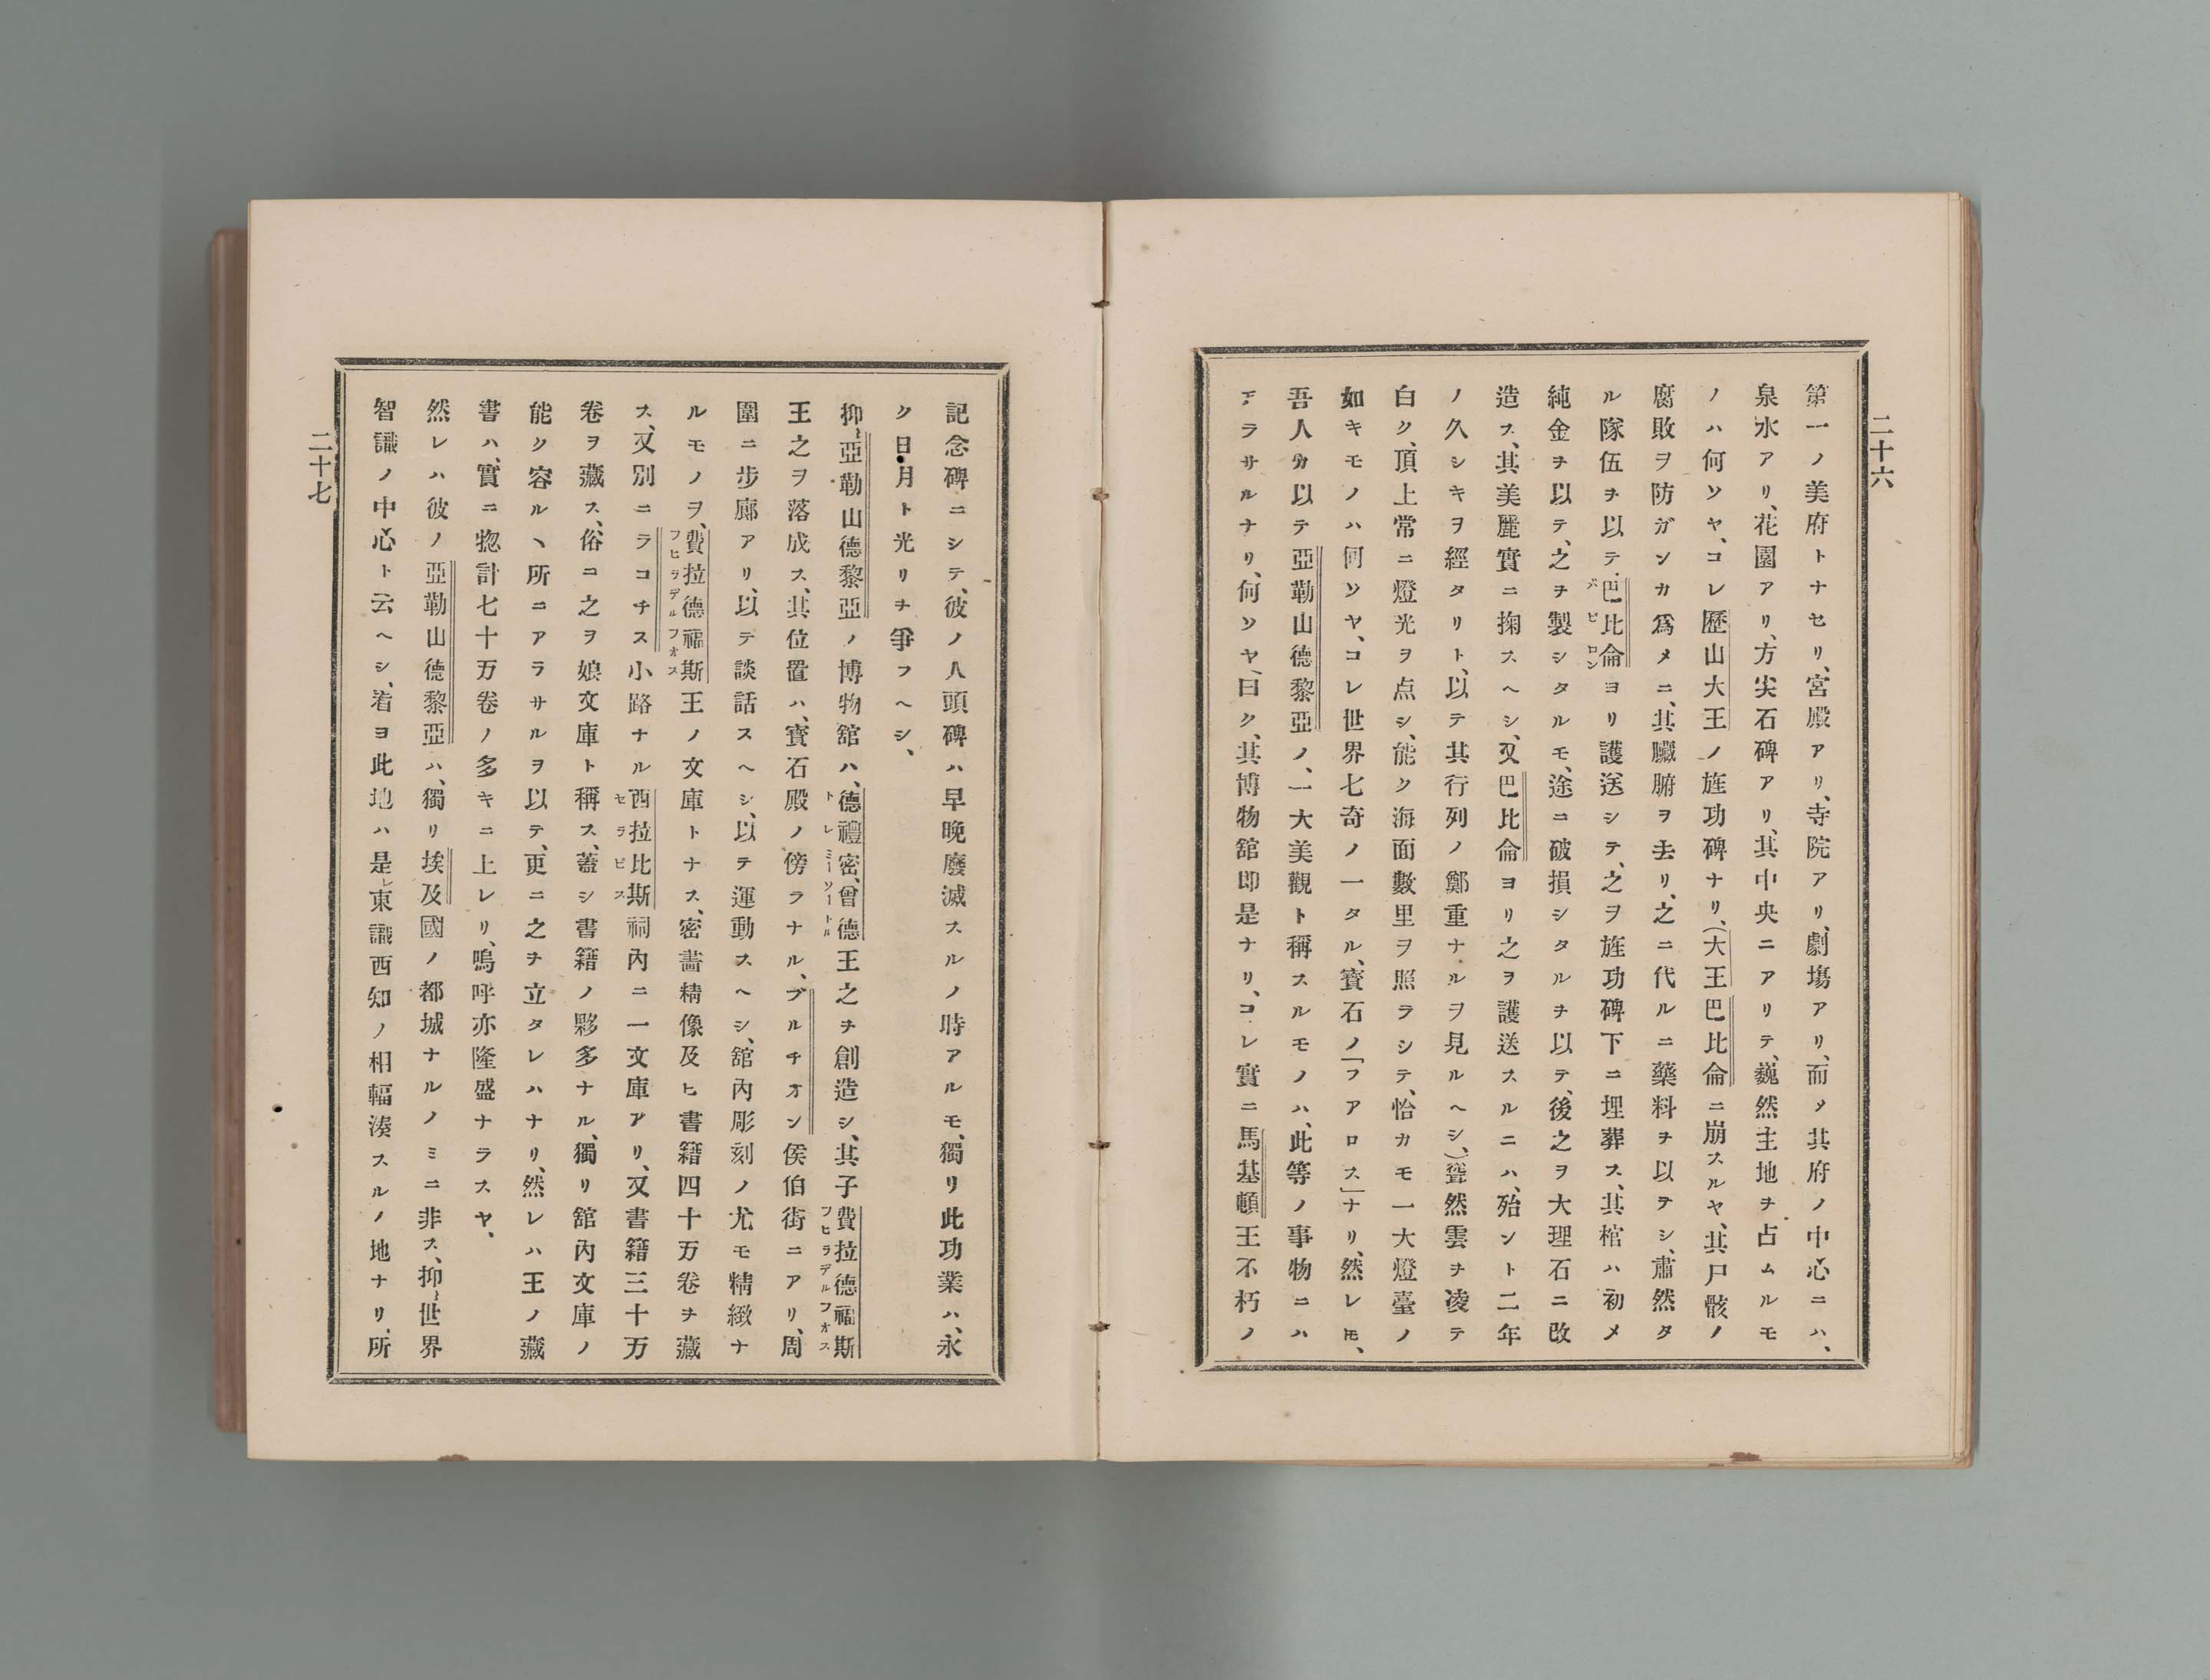 二十六
第一ノ美府トナセリ、宮殿アリ、寺院アリ、劇塲アリ、而〆其府ノ中心ニハ、
泉水アリ、花園アリ、方尖石碑アリ、其中央ニアリテ、巍然主地ヲ占ムルモ
ノハ何ソヤ、コレ歴山大王ノ旌功碑ナリ、(大王巴比侖ニ崩スルヤ、其尸骸ノ
腐敗ヲ防ガンカ爲メニ、其臟腑ヲ去リ、之ニ代ルニ藥料ヲ以テシ、肅然タ
ル隊伍ヲ以テ、巴比侖ヨリ護送シテ、之ヲ旌功碑下ニ埋葬ス、其棺ハ初メ
バビロン
純金ヲ以テ、之ヲ製シタルモ、途ニ破損シタルヲ以テ、後之ヲ大理石ニ改
造ス、其美麗實ニ掬スヘシ、又巴比侖ヨリ之ヲ護送スルニハ、殆ント二年
ノ久シキヲ經タリト、以テ其行列ノ鄭重ナルヲ見ルヘシ、)聳然雲ヲ凌テ
白ク、頂上常ニ燈光ヲ点シ、能ク海面數里ヲ照ラシテ、恰カモ一大燈臺ノ
如キモノハ何ソヤ、コレ世界七奇ノ一タル、寳石ノ「フアロス」ナリ、然レ𪜈、
吾人カ以テ亞勒山德黎亞ノ、一大美觀ト稱スルモノハ、此等ノ事物ニハ
アラサルナリ、何ソヤ、曰ク、其博物舘即是ナリ、コレ實ニ馬基頓王不朽ノ
二十七
記念碑ニシテ、彼ノ人頭碑ハ早晩廢滅スルノ時アルモ、獨リ此功業ハ、永
ク日月ト光リヲ爭フヘシ、
抑亞勒山德黎亞ノ博物舘ハ、德禮密、曾德王之ヲ創造シ、其子費拉德福斯
トレミーソートル
フヒラデルフオス
王之ヲ落成ス、其位置ハ、寳石殿ノ傍ラナル、ブルチオン侯伯街ニアリ、周
圍ニ歩廊アリ、以テ談話スヘシ、以テ運動スヘシ、舘內彫刻ノ尤モ精緻ナ
ルモノヲ、費拉德福斯王ノ文庫トナス、密畵精像及ヒ書籍四十万卷ヲ藏
フヒラデルフオス
ス、又別ニラコチス小路ナル西拉比斯祠內ニ一文庫アリ、又書籍三十万
セラピス
卷ヲ藏ス、俗ニ之ヲ娘文庫ト稱ス、蓋シ書籍ノ夥多ナル、獨リ舘內文庫ノ
能ク容ルヽ所ニアラサルヲ以テ、更ニ之ヲ立タレハナリ、然レハ王ノ藏
書ハ、實ニ惣計七十万卷ノ多キニ上レリ、嗚呼亦隆盛ナラスヤ、
然レハ彼ノ亞勒山德黎亞ハ、獨リ埃及國ノ都城ナルノミニ非ス、抑世界
智識ノ中心ト云ヘシ、着ヨ此地ハ是レ東識西知ノ相輻湊スルノ地ナリ、所